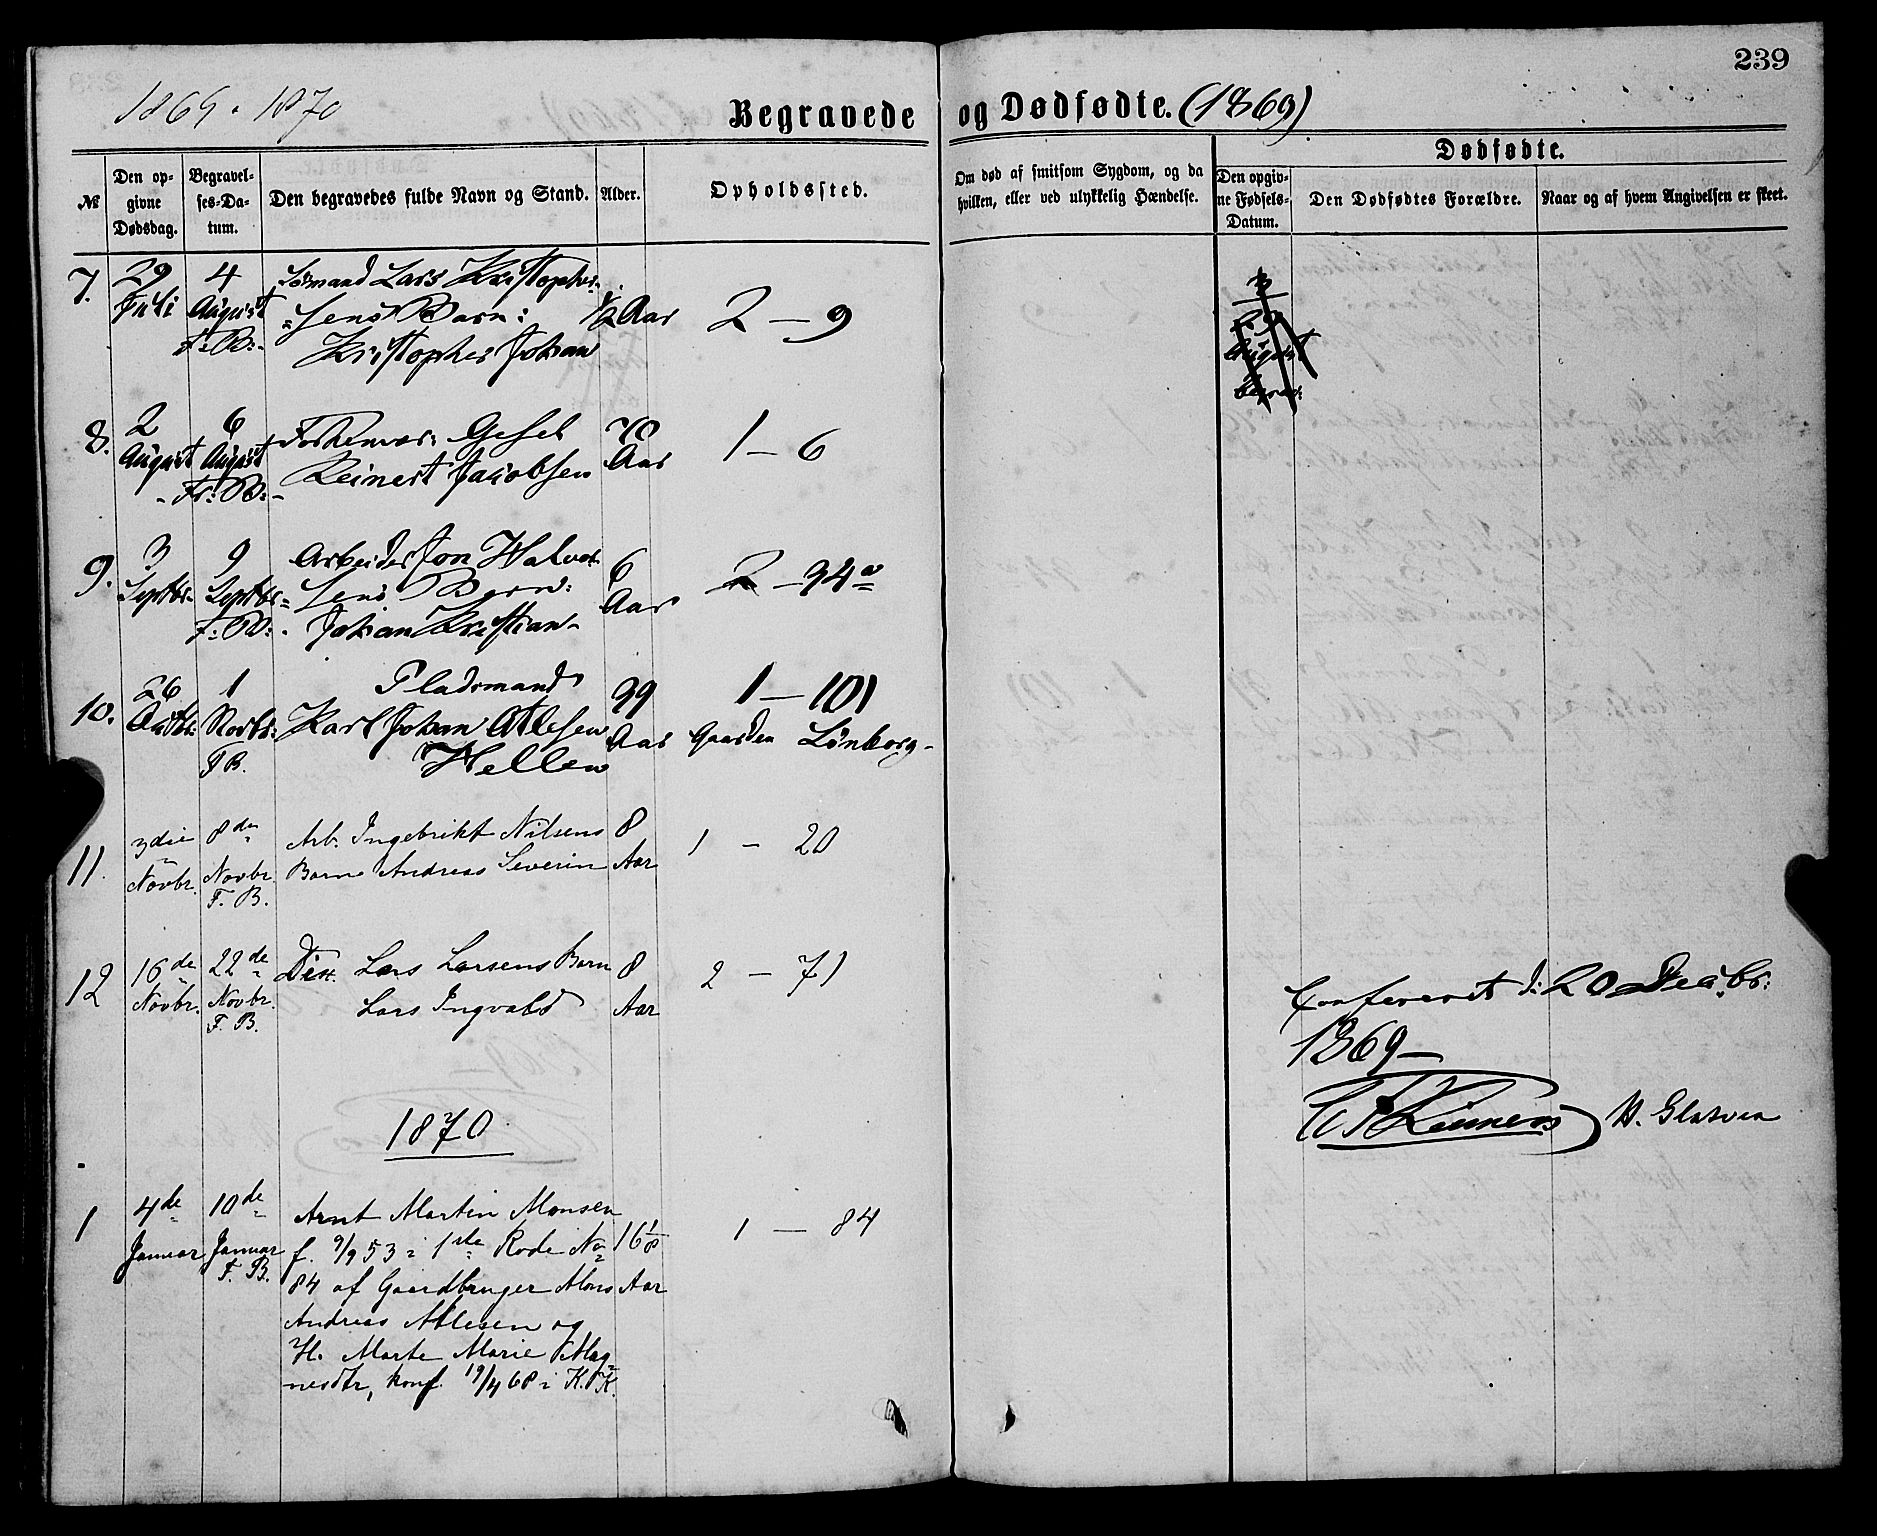 239
1869 . 1870
Begravede og Dødfødte. (1869)
№
Den op-
givne
Dødsdag.
Begravel-
ses-Da-
tum.
Den begravedes fulde Navn og Stand.
Alder.
Opholdssted.
Om død af smitsom Sygdom, og da
hvilken, eller ved ulykkelig Hændelse.
Dødfødte.
Den opgiv-
ne Fødsels-
Datum.
Den Dødfødtes Forældre.
Naar og af hvem Angivelsen er skeet.
7. 29 Juli
4 August F: B:
Sømand Lars Kristopher-
sens Barn:
Kristopher Johan
1/2 Aar
2 — 9
August
8. 2 August
6 August Fr: B:
Forhenvær: Gesel
Reinert Jacobsen
70 Aar
1 — 6
9. 3 Septbr
9 Septbr F: B:
Arbeider Jon Halvor
sens Barn:
Johan Kristian
6 Aar
2 — 34a
10. 26 Octbr:
1 Novbr: F B.
Pladsmand
Karl Johan Atlesen
Hellen
39 Aar
1 — 101
Gaarden Lönborg
11. 3die Novbr.
8de Novbr. F. B.
Arb. Ingebrikt Nilsens
Barn Andreas Severin
8 Aar
1 - 20
12 16de Novbr.
22de Novbr. F. B.
Lars Larsens Barn
Lars Ingvald
8 Aar
2 — 71
Confereret d: 20 Decbr:
1869—
1870
1 4de Januar
10de Januar F. B.
Arnt Martin Monsen
f. 9/9 53 i 1ste Rode No
84 af Gaardbruger Mons
Andreas Atlesen og
H. Marte Marie Mag
nesdtr, konf. 19/4 68 i K. K.
16 1/8 Aar
1 — 84